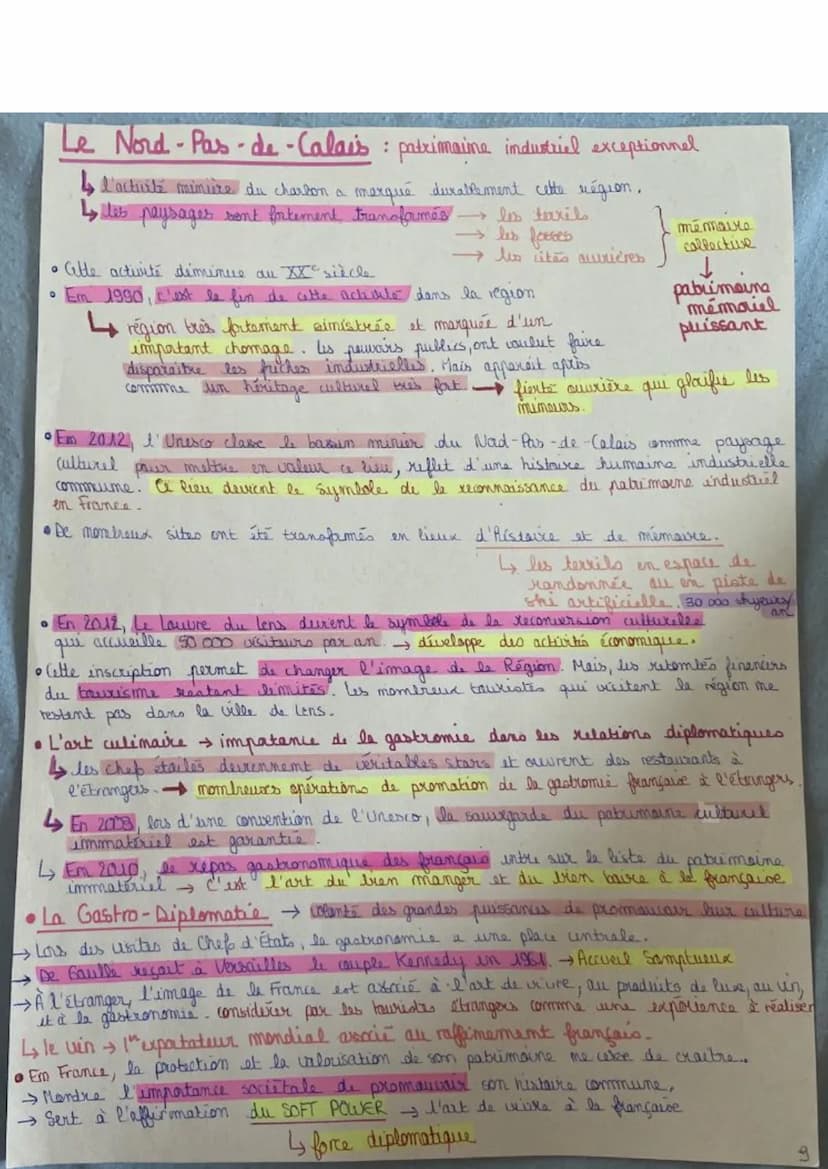 Le Nord-Pas-de-Calais : patrimoine industriel exceptionnel
↳ l'activité minière du charbon a marqué durablement cette région.
↳ les paysages sont fortement transformés → les terrils
→ les fosses
→ les cités ouvrières
mémoire collective
↓
patrimoine mémoriel puissant
• Cette activité diminue au XXe siècle
• En 1990, c'est la fin de cette activité dans la région
↳ région très fortement sinistrée et marquée d'un
important chomage. Les pouvoirs publics, ont voulut faire
disparaitre les friches industrielles. Mais apparait après
comme un héritage culturel très fort → fierté ouvrière qui glorifie les
mineurs.
• En 2012, l'Unesco classe le bassin minier du Nord-Pas-de-Calais comme paysage
culturel pour mettre en valeur ce lieu, reflet d'une histoire humaine industrielle
commune. Ce lieu devient le symbole de la reconnaissance du patrimoine industriel
en France.
• De nombreux sites ont été transformés en lieux d'Histoire et de mémoire.
↳ les terrils en espace de
randonnée ou en piste de
ski artificielle. 30 000 skyeurs/
an
• En 2012, Le Louvre du Lens devient le symbole de la reconversion culturelle
qui accueille 50 000 visiteurs par an → développe des activités économique.
• Cette inscription permet de changer l'image de la Région. Mais, les retombés financiers
du tourisme restant limités. Les nombreux touristes qui visitent la région ne
restent pas dans la ville de Lens.
• L'art culinaire → importance de la gastromie dans les relations diplomatiques
↳ les chef étoilés deviennent de véritables stars et ouvrent des restaurants à
l'étrangers. → nombreuses opérations de promotion de la gastromie française à l'étrangers.
↳ En 2003, lors d'une convention de l'Unesco, la sauvegarde du patrimoine culturel
immatériel est garantie.
↳ En 2010, le repas gastronomique des français entre sur la liste du patrimoine
immatériel → c'est l'art du bien manger et du bien boire à la française
• La Gastro-Diplomatie → volonté des grandes puissances de promouvoir leur culture
→ Lors des visites de Chef d'États, la gastronomie a une place centrale.
→ De Gaulle reçoit à Versailles le couple Kennedy en 1961. → Accueil Somptueux
→ À l'étranger, l'image de la France est associé à l'art de vivre, au produits de luxe, au vin,
et à la gastronomie. considérer par les touristes étrangers comme une expérience à réaliser
↳ le vin → 1er exportateur mondial associé au raffinement français.
• En France, la protection et la valorisation de son patrimoine ne cesse de croitre.
→ Montre l'importance sociétale de promouvoir son histoire commune,
→ Sert à l'affirmation du SOFT POWER → l'art de vivre à la française
↳ force diplomatique
9